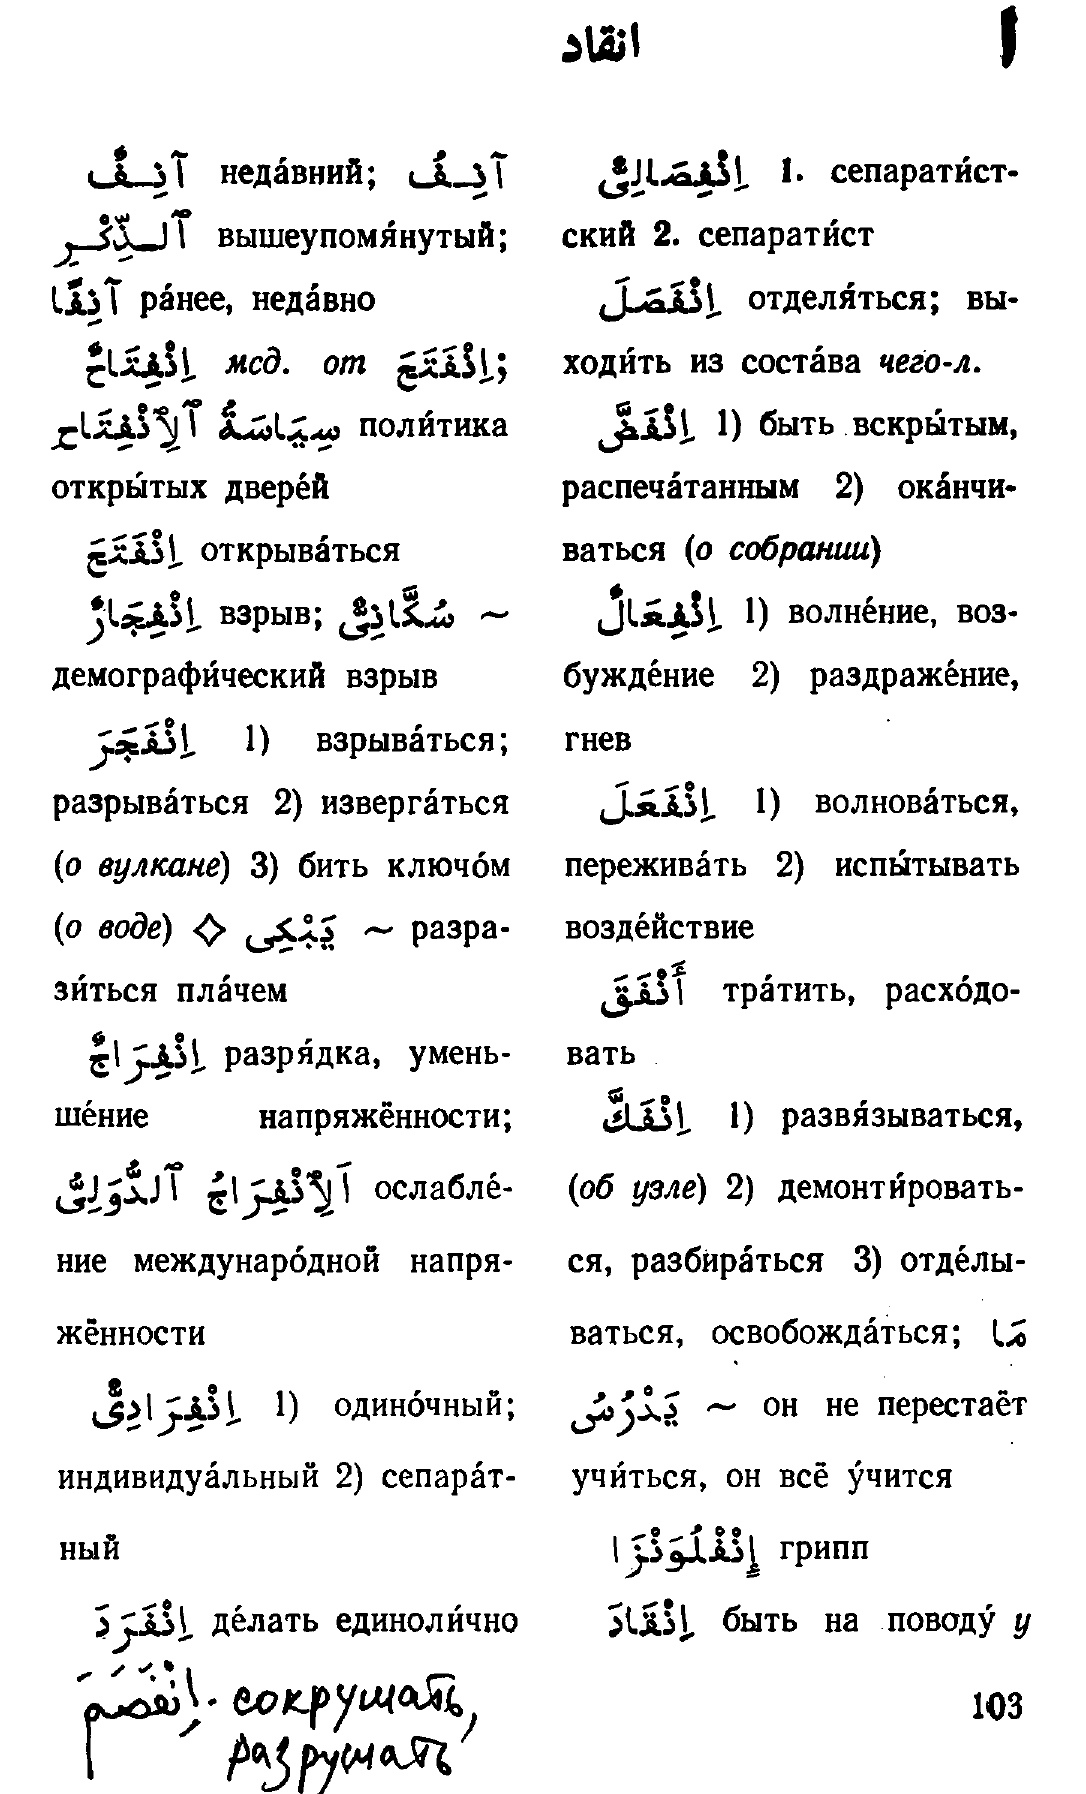 انقاد
ا
آنِفٌ неда́вний; آنِفُ
ٱلذِّكْرِ вышеупомя́нутый;
آنِفًا ра́нее, неда́вно
اِنْفِتَاحٌ мсд. от اِنْفَتَحَ;
سِيَاسَةُ ٱلاِنْفِتَاحِ поли́тика
откры́тых двере́й
اِنْفَتَحَ открыва́ться
اِنْفِجَارٌ взрыв; سُكَّانِىٌّ ~
демографи́ческий взрыв
اِنْفَجَرَ 1) взрыва́ться;
разрыва́ться 2) изверга́ться
(о вулкане) 3) бить ключо́м
(о воде) ◇ يَبْكِى ~ разра-
зи́ться пла́чем
اِنْفِرَاجٌ разря́дка, умень-
ше́ние напряжённости;
اَلاِنْفِرَاجُ ٱلدُّوَلِىُّ ослабле́-
ние междунаро́дной напря-
жённости
اِنْفِرَادِىٌّ 1) одино́чный;
индивидуа́льный 2) сепара́т-
ный
اِنْفَرَدَ де́лать единоли́чно
اِنْفَصَمَ - сокрушать,
разрушать
اِنْفِصَالِىٌّ 1. сепарати́ст-
ский 2. сепарати́ст
اِنْفَصَلَ отделя́ться; вы-
ходи́ть из соста́ва чего-л.
اِنْفَضَّ 1) быть вскры́тым,
распеча́танным 2) ока́нчи-
ваться (о собрании)
اِنْفِعَالٌ 1) волне́ние, воз-
бужде́ние 2) раздраже́ние,
гнев
اِنْفَعَلَ 1) волнова́ться,
пережива́ть 2) испы́тывать
возде́йствие
أَنْفَقَ тра́тить, расхо́до-
вать
اِنْفَكَّ 1) развя́зываться,
(об узле) 2) демонти́ровать-
ся, разбира́ться 3) отде́лы-
ваться, освобожда́ться; مَا
يَدْرُسُ ~ он не перестаёт
учи́ться, он всё у́чится
إِنْفْلُوَنْزَا грипп
اِنْقَادَ быть на поводу́ у
103